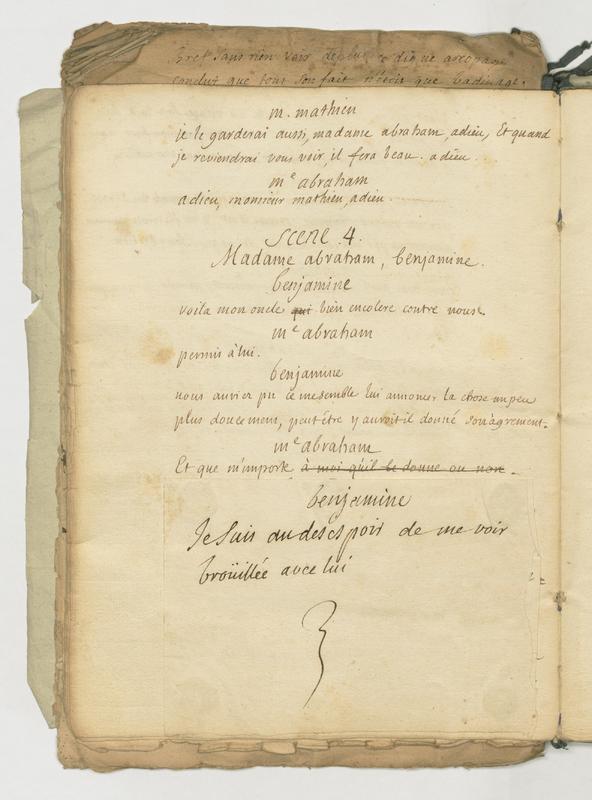 Bref sans rien voir de plus ce digne aréopage
conclut que tout son fait n'étoit que badinage.
m. mathieu
je le garderai aussi, madame abraham, adieu, Et quand
je reviendrai vous voir, il fera beau. adieu.
m.e abraham
adieu, monsieur mathieu, adieu.
Scene 4.
Madame abraham, benjamine.
benjamine
voila mon oncle qui bien encolere contre nous.
m.e abraham
permis à lui.
benjamine
vous auriez pu ce me semble lui annoncer la chose un peu
plus doucement, peut être y auroit il donné son agrement.
m.e abraham
Et que m'importe à moi qu'il le donne ou non.
benjamine
Je suis au desespoir de me voir
broüillée avec lui